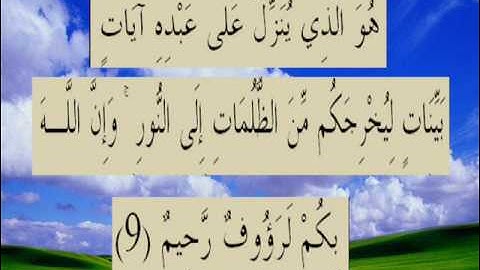 هُوَ الَّذِي يُنَزِّلُ عَلَى عَبْدِهِ آيَاتٍ
بَيِّنَاتٍ لِيُخْرِجَكُم مِّنَ الظُّلُمَاتِ إِلَى النُّورِ ۚ وَإِنَّ اللَّـهَ
بِكُمْ لَرَؤُوفٌ رَّحِيمٌ (9)